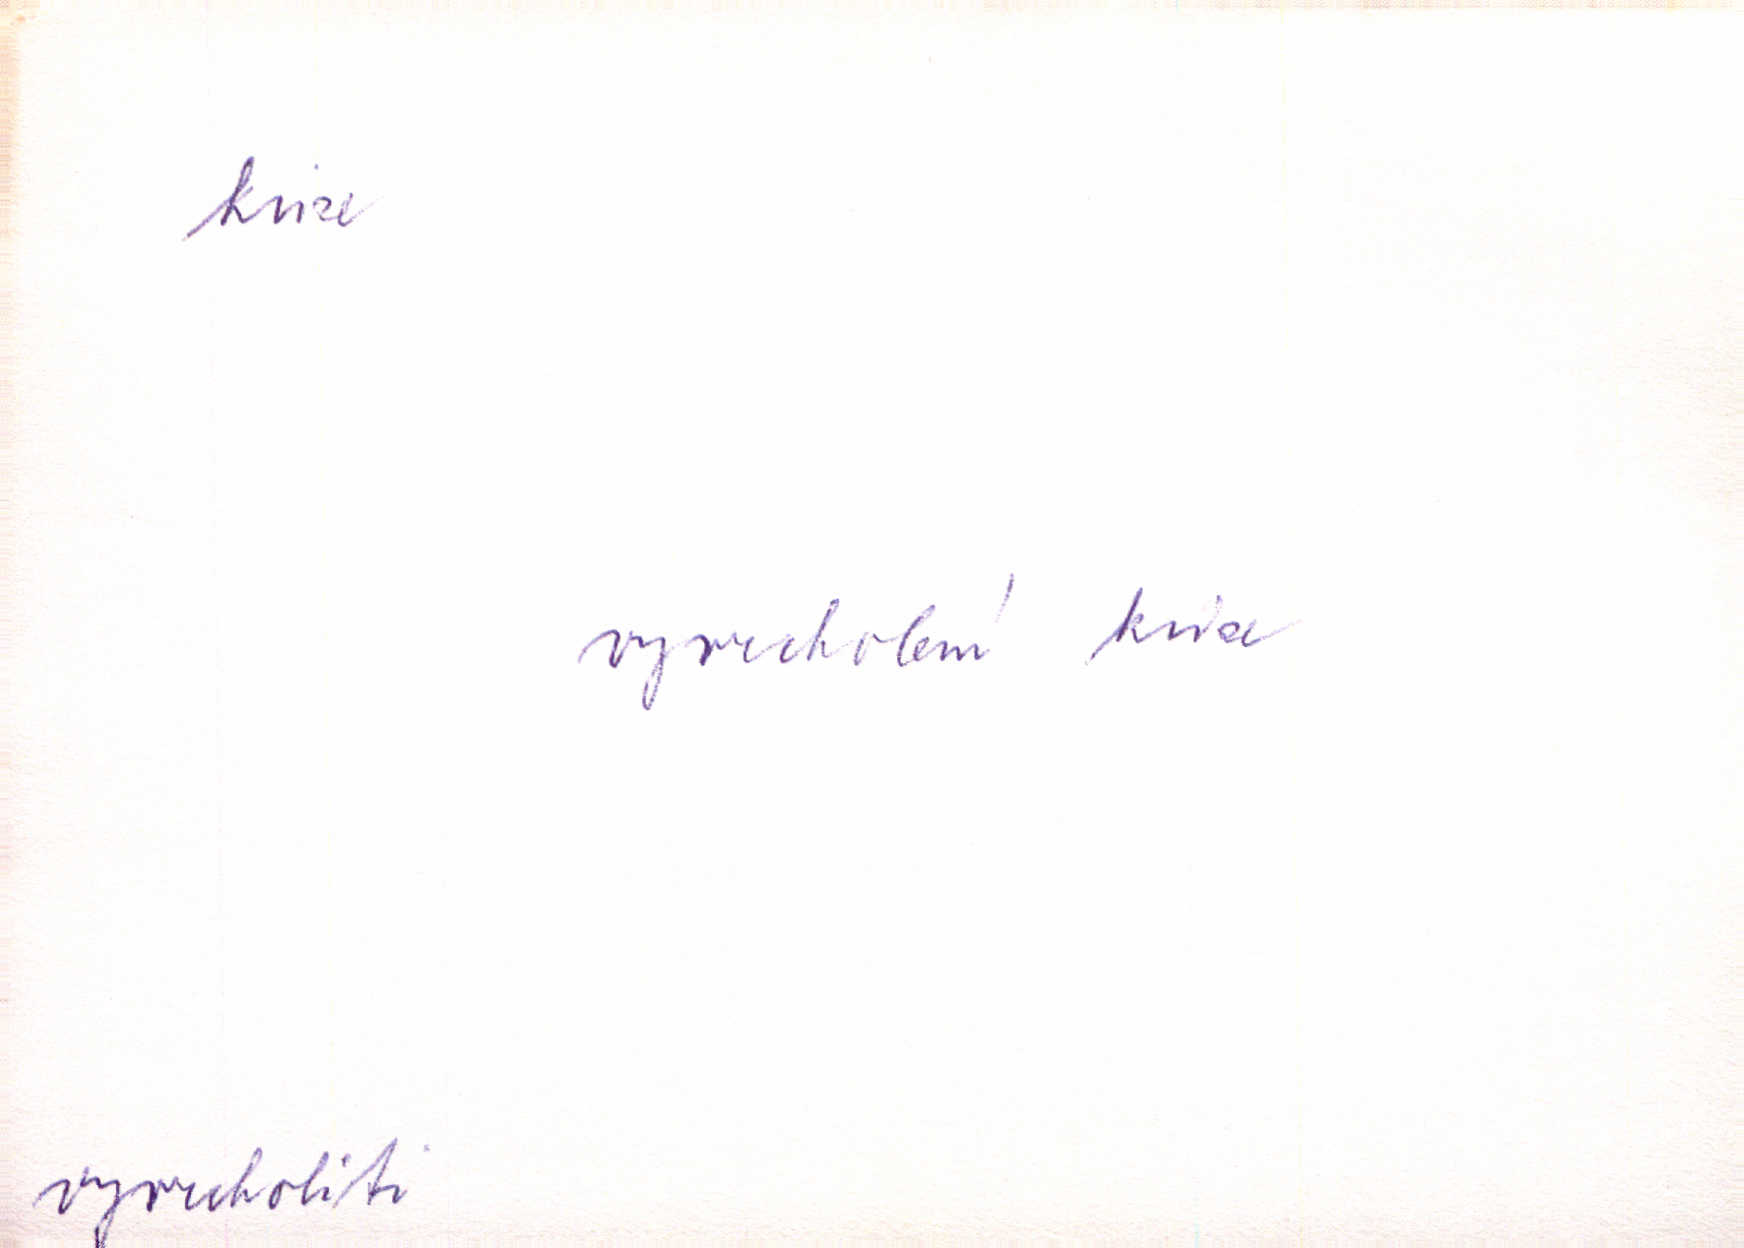 krize
vyvrcholení krize
vyvrcholiti